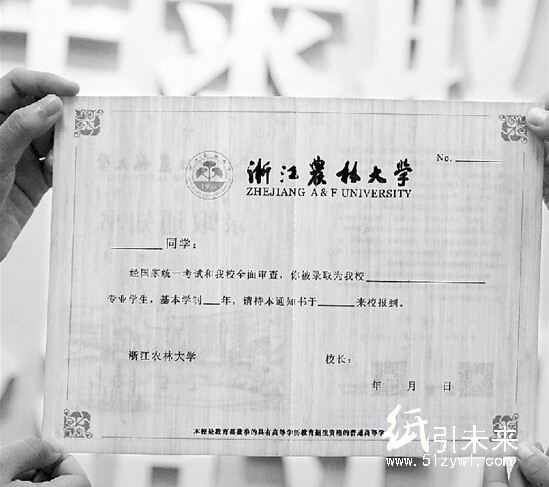 No.
浙江农林大学
ZHEJIANG A & F UNIVERSITY
同学：
经国家统一考试和我校全面审查，你被录取为我校
专业学生，基本学制 年，请持本通知书于 来校报到。
浙江农林大学 校长：
年 月 日
本校是教育部批准的具有高等学历教育招生资格的普通高等学
纸引未来
www.51zywl.com